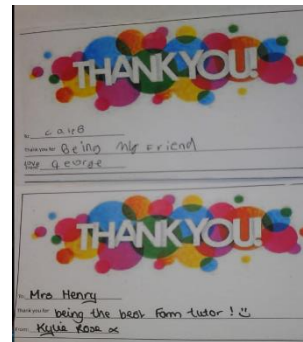 THANK YOU!
to caleb
Thank you for Being my Friend
George
THANK YOU!
to Mrs Henry
Thank you for being the best Form tutor!
From Kylie Rose x